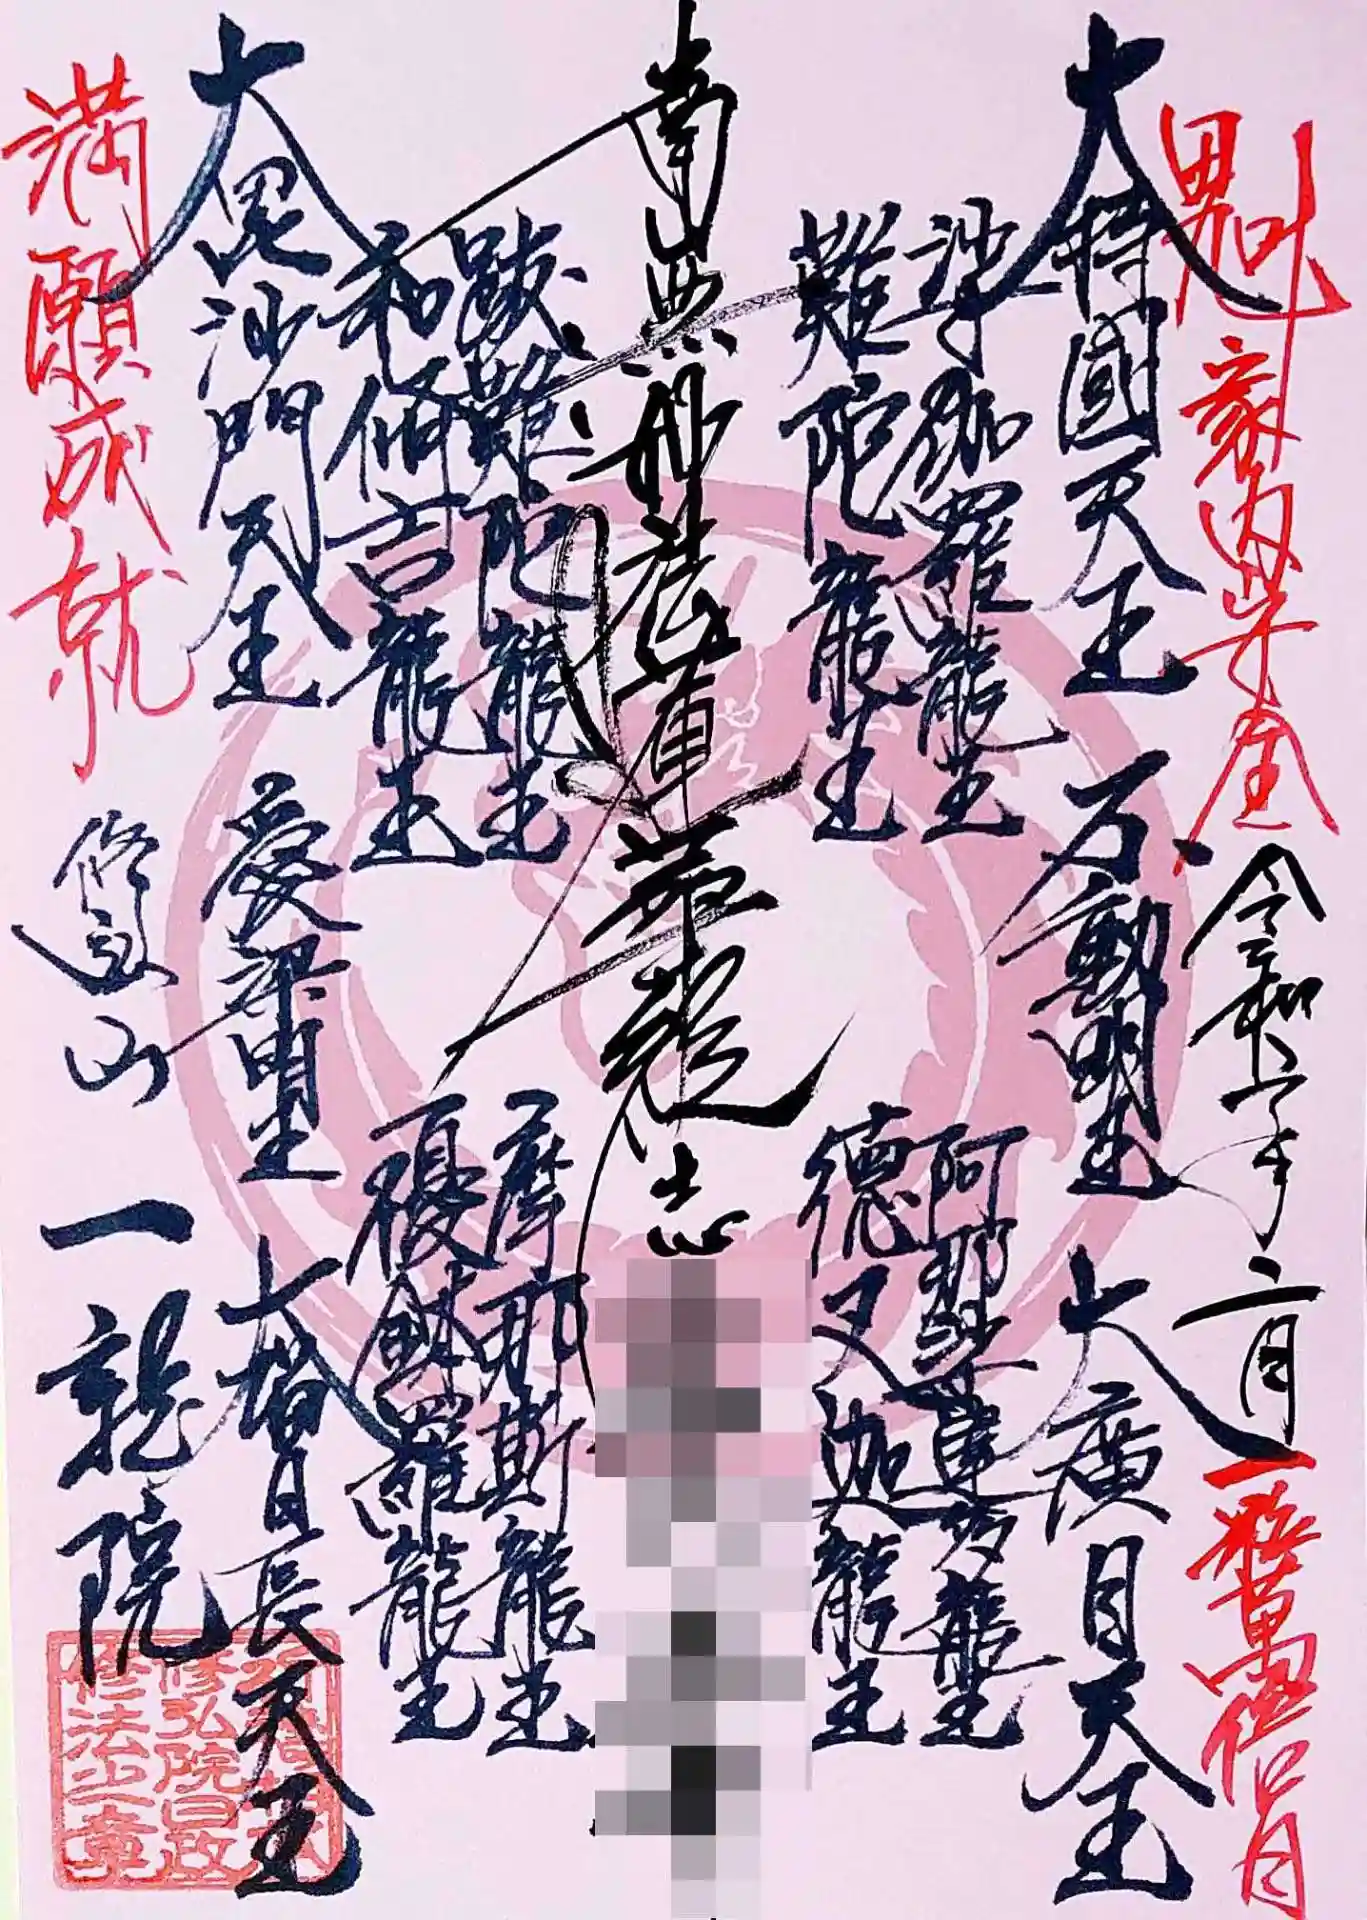 家内安全
令和
年二月一粒萬倍日
大持國天王
不動明王
大廣目天王
沙伽羅龍王
阿那婆達多龍王
難陀龍王
徳叉迦龍王
南無妙法蓮華経
志
跋難陀龍王
摩那斯龍王
和修吉龍王
優鉢羅龍王
大毘沙門天王
愛染明王
大増長天王
満願成就
山
一龍院
修弘院日政
修法之章